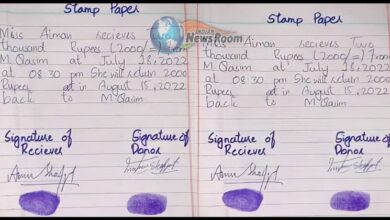 Stamp Paper
Miss Aiman recieves two
thousand Rupees (2000/=) from
M.Qasim at July 28,2022
at 08:30 pm She will return 2000
Rupees get in August 15,2022
back to M.Qasim
Signature of
Reciever
Signature of
Donor
INDIAN
NewsRoom
Stamp Paper
Miss Aiman recieves Two
thousand Rupees (2000/=) from
M.Qasim at July 28,2022
at 08:30 pm She will return 2000
Rupees get in August 15,2022
back to M.Qasim
Signature of
Reciever
Signature of
Donor